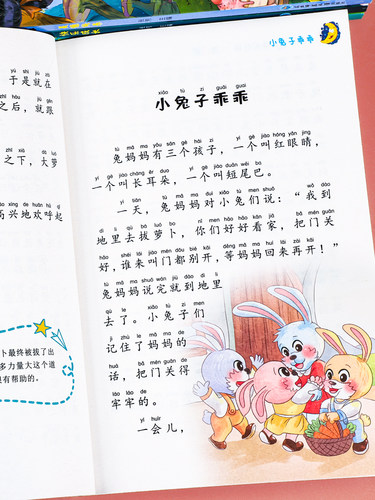 yú shì jiù zài
于是就在
zhī hòu jiù gēn
之后，就跟
zhī xià dà luó
之下，大萝
gāo xìng de huān hū qǐ
高兴地欢呼起
卜最终被拔了出
多力量大这个道
很有帮助的。
小兔子乖乖
xiǎo tù zi guāi guai
小兔子乖乖
tù mā ma yǒu sān gè hái zi yí gè jiào hóng yǎn jing
兔妈妈有三个孩子，一个叫红眼睛，
yí gè jiào cháng ěr duo yí gè jiào duǎn wěi ba
一个叫长耳朵，一个叫短尾巴。
yì tiān tù mā ma duì xiǎo tù men shuō wǒ dào
一天，兔妈妈对小兔们说：“我到
dì li qù bá luó bo nǐ men hǎo hǎo kān jiā bǎ mén guān
地里去拔萝卜，你们好好看家，把门关
hǎo shéi lái jiào mén dōu bié kāi děng mā ma huí lái zài kāi
好，谁来叫门都别开，等妈妈回来再开！”
tù mā ma shuō wán jiù dào dì li
兔妈妈说完就到地里
qù le xiǎo tù zi men
去了。小兔子们
jì zhù le mā ma de
记住了妈妈的
huà bǎ mén guān de
话，把门关得
láo láo de
牢牢的。
yí huìr
一会儿，